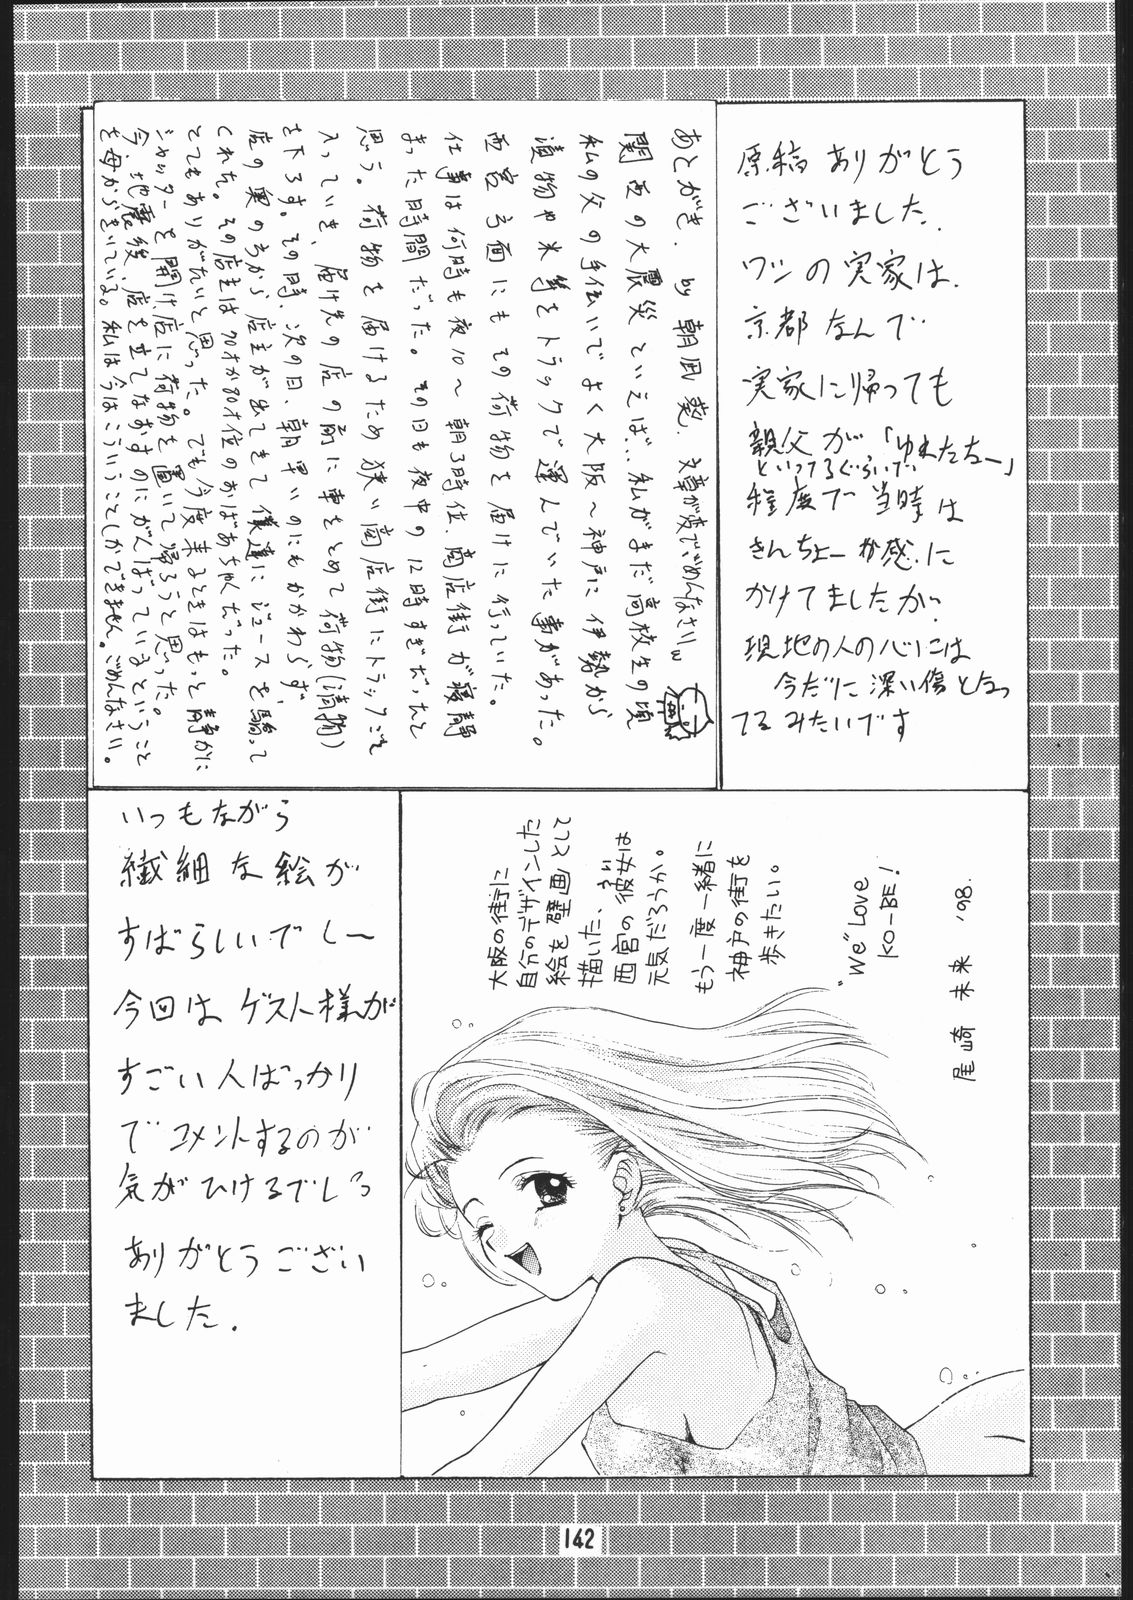 あとがき. by 朝凪 葵. 文章が変でごめんなさいw
関西の大震災といえば…私がまだ高校生の頃
私の父の手伝いでよく大阪～神戸に伊勢から
漬物や米等をトラックで運んでいた事があった。
西宮方面にもその荷物を届けに行っていた。
仕事は何時も夜10～朝3時位、商店街が寝静
まった時間だった。その日も夜中の12時すぎだったと
思う。荷物を届けるため狭い商店街にトラックごと
入っていき、届け先の店の前に車をとめて荷物(漬物)
を下ろす。その時、次の日、朝早いのにもかかわらず、
店の奥の方から店主が出てきて僕達にジュースを騎って
くれた。その店主は70才か80才位のおばあちゃんだった。
とてもありがたいと思った。でも今度来るときはもっと静かに
シャッターを開け店に荷物を置いて帰ろうと思った。
今、地震後、店を立てなおすのにがんばっているということ
を母からきいている。私は今はこういうことしかできません。ごめんなさい。
原稿ありがとう
ございました.
ワシの実家は.
京都なんで
実家に帰っても
親父が「ゆれたたー」
といってるぐらいで
程度で当時は
きんちょー感.に
かけてましたが.
現地の人の心には
今だに深い傷となっ
てるみたいです
いつもながら
繊細な絵が
すばらしいでしー
今回はゲスト様が
すごい人ばっかり
でコメントするのが
気がひけるでしっ
ありがとうござい
ました.
大阪の街に
自分のデザインした
絵を壁画として
描いた、
西宮の彼女は
元気だろうか。
もう一度一緒に
神戸の街を
歩きたい。
"We" Love
KO-BE!
尾崎 未来 '98.
142